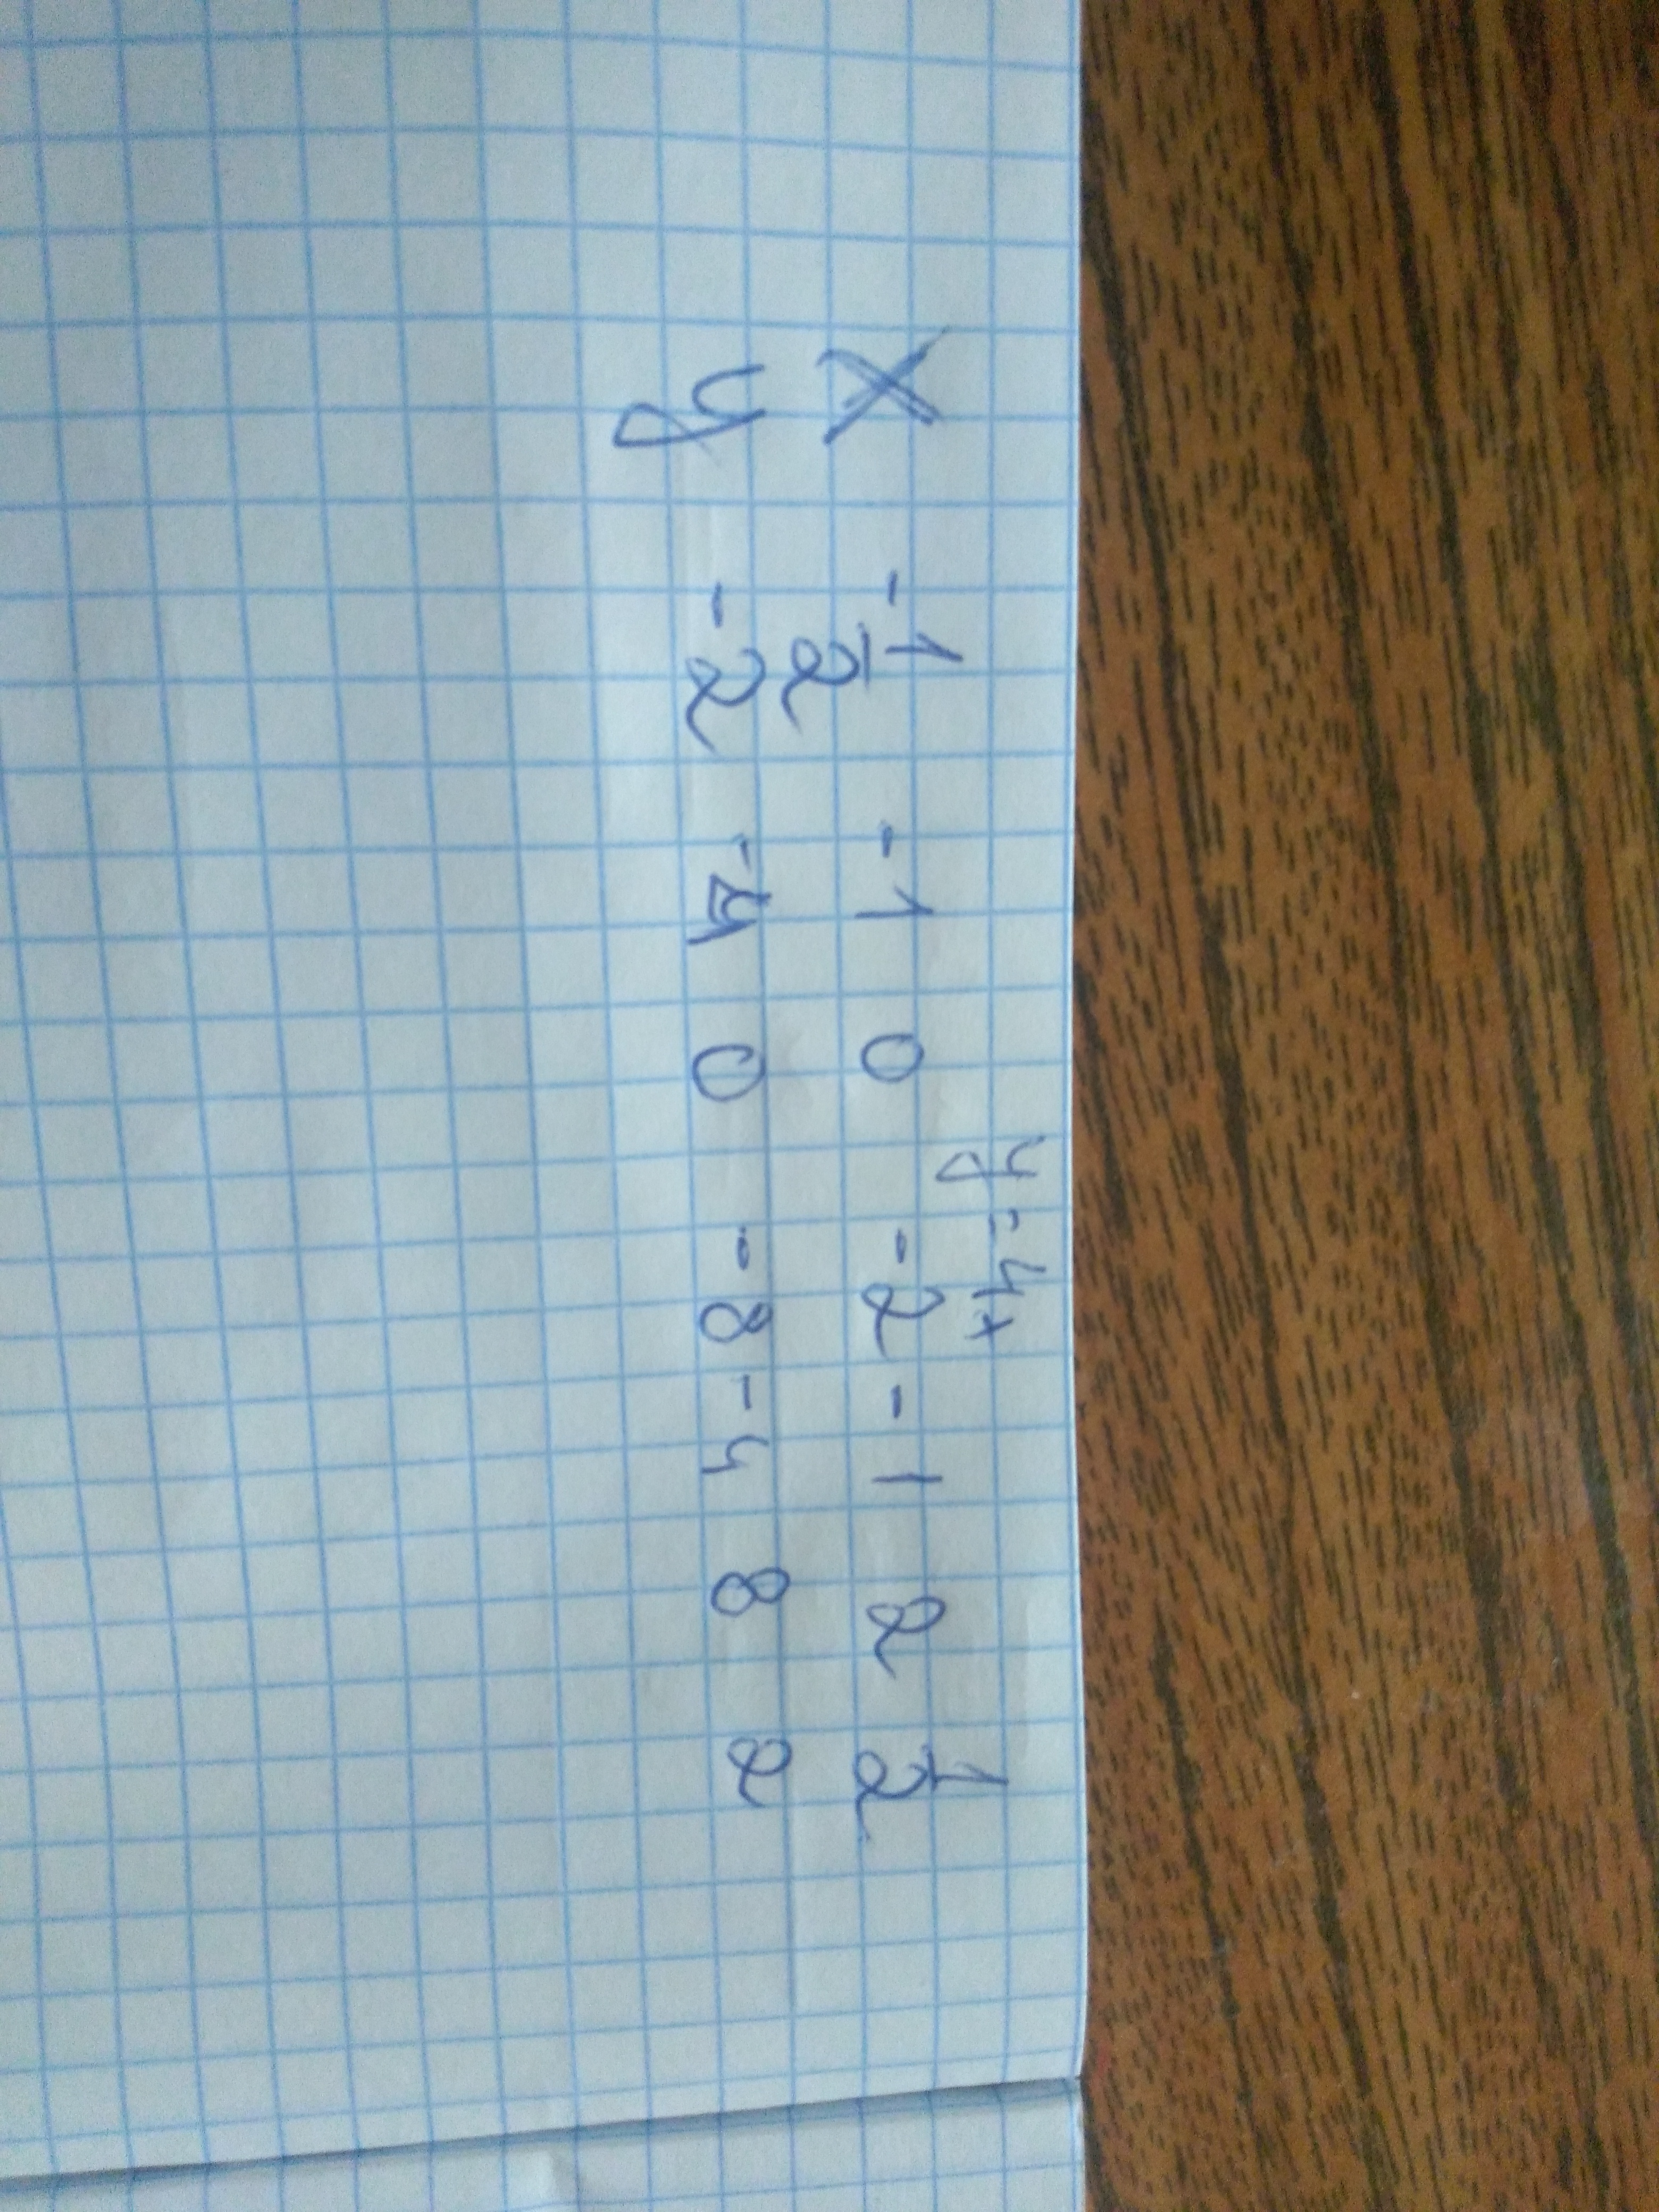 y = 4x
x -1/2 -1 0 -2 -1 2 1/2
y -2 -4 0 -8 -4 8 2